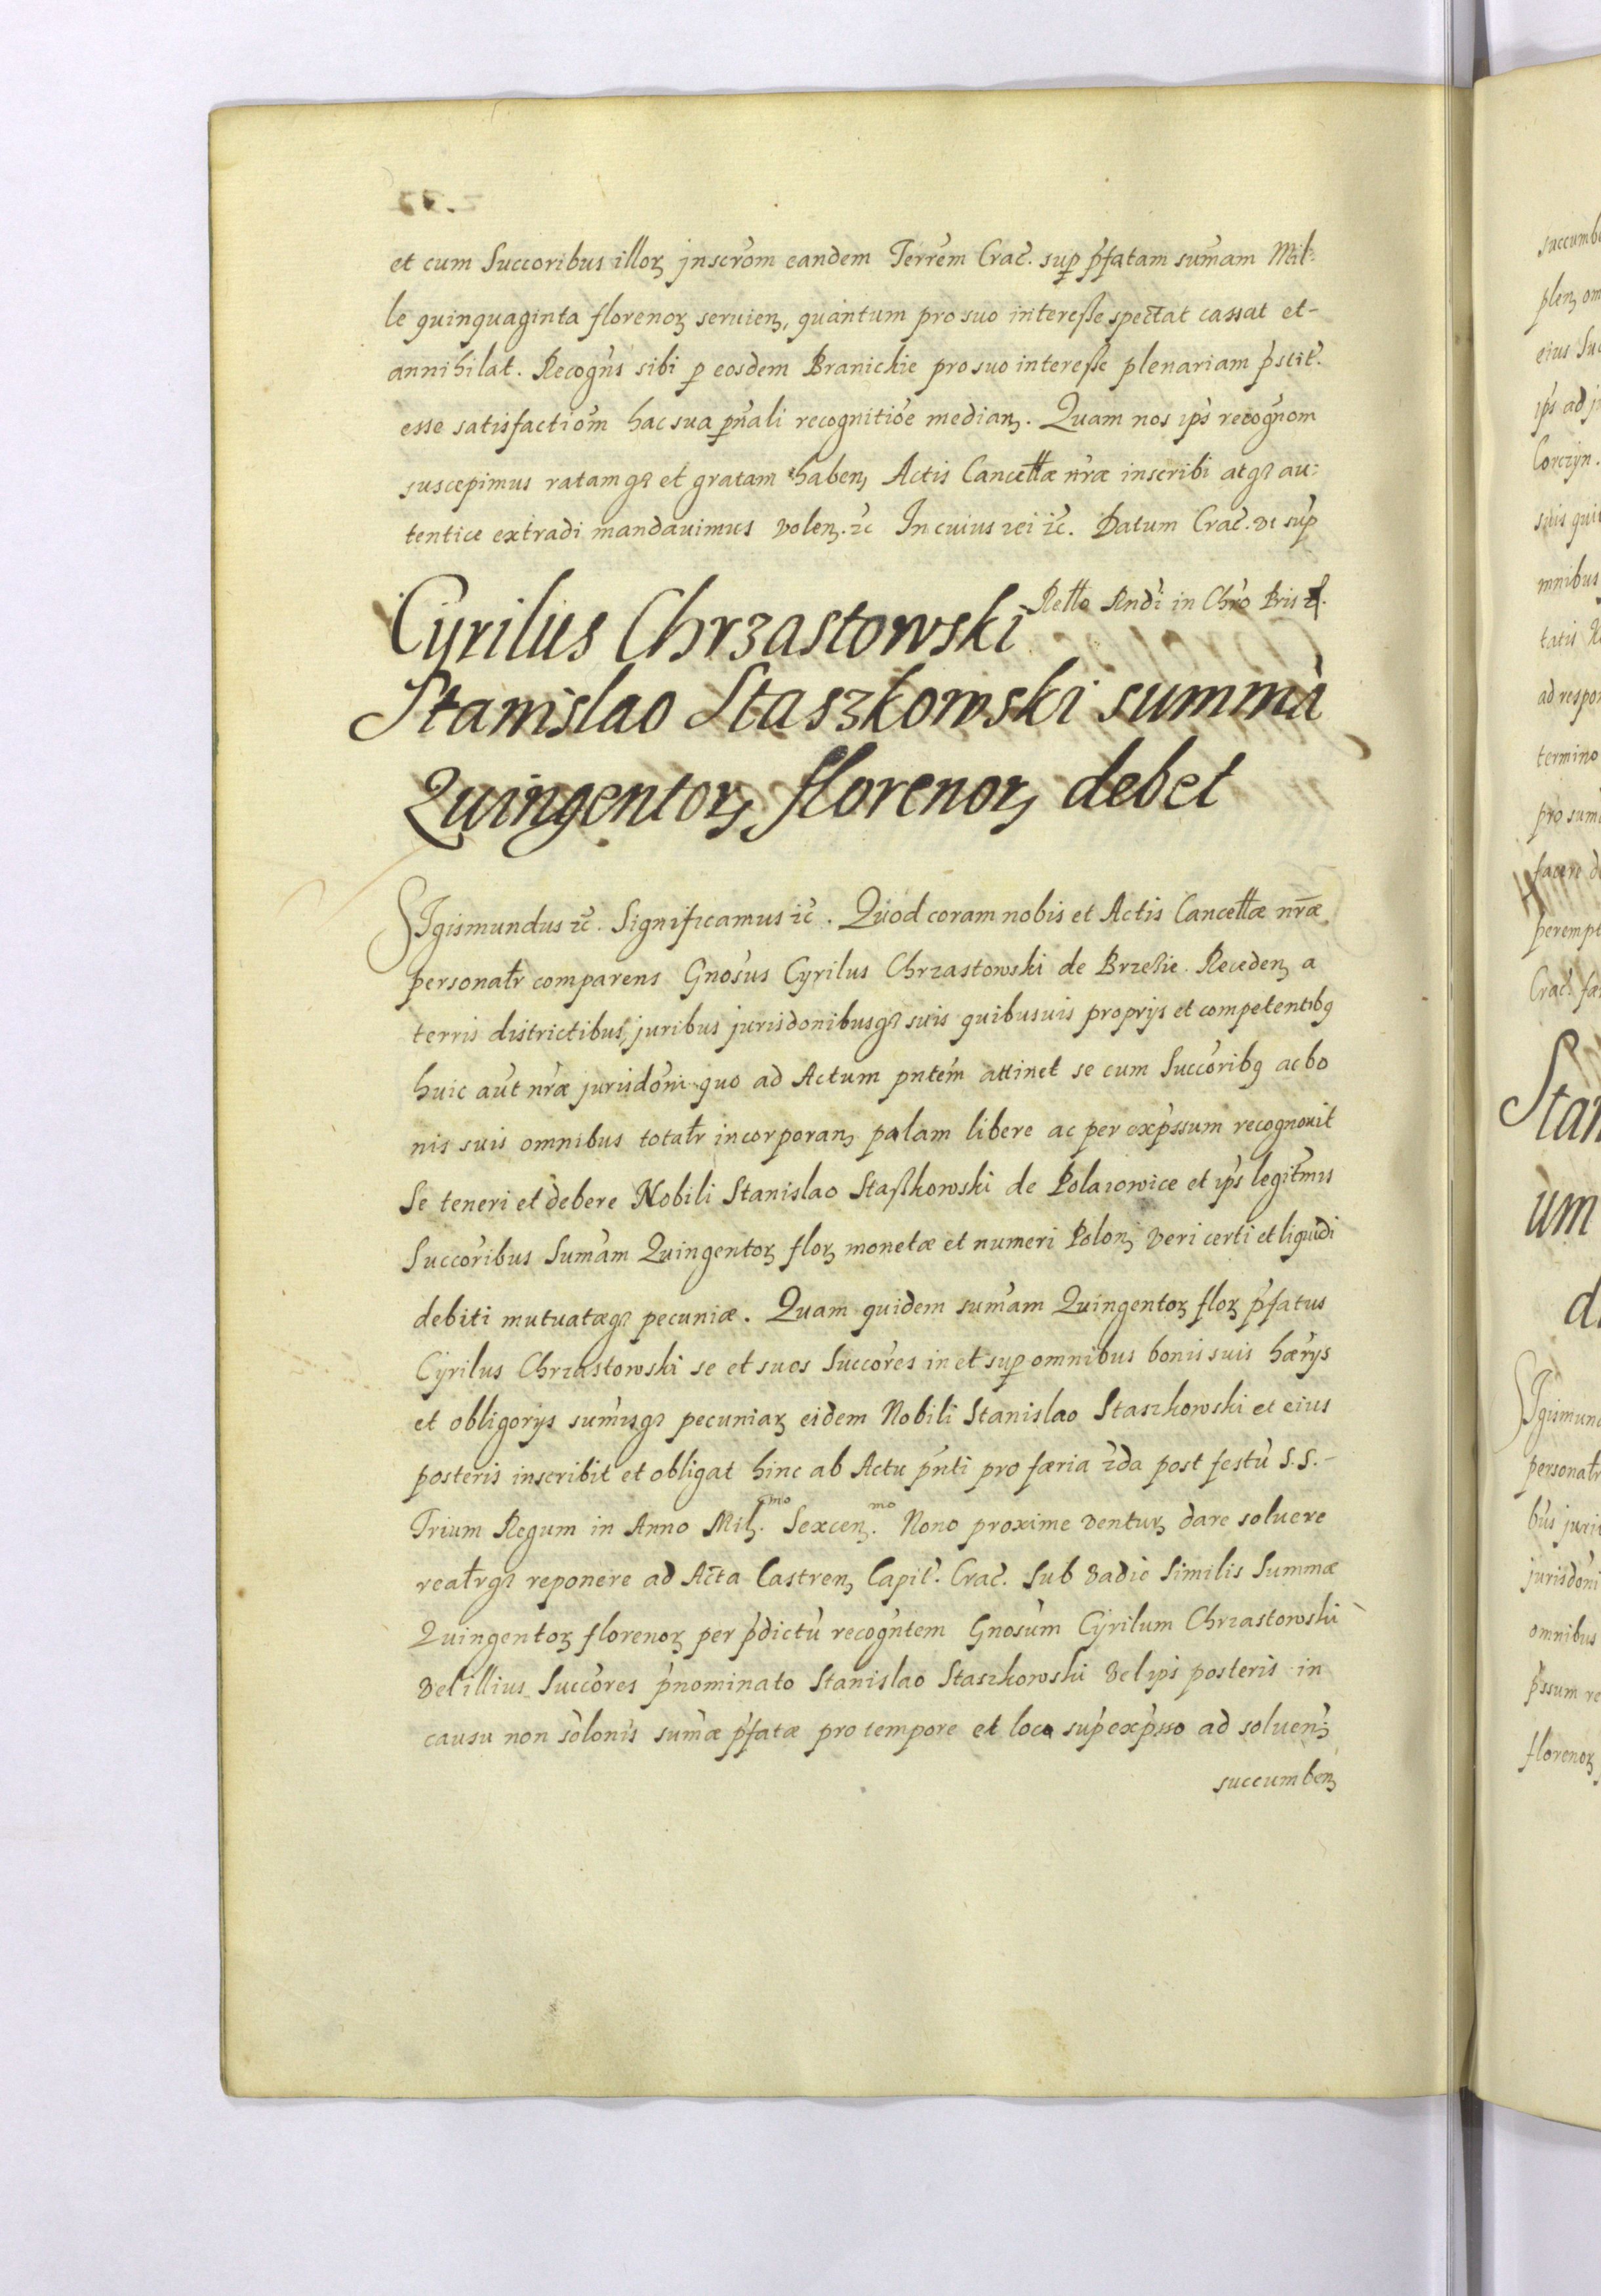 et cum Succoribus illoꝝ jnscrõm eandem Terrẽm Crac̃. suꝑ p̃fatam sum̃am Mil:
le quinquaginta florenoꝝ servienꝫ, quantum pro suo interesse spectat cassat et-
annihilat. Recogñs sibi ꝑ eosdem Branickie pro suo interesse plenariam p̃stit̃.
esse satisfactiõm hac sua ꝑñali recognitiõe medianꝫ. Quam nos ip̃s recogñom
suscepimus ratamqꝫ et gratam habenꝫ Actis Cancełłæ nr̃æ inscribi atqꝫ au:
tentice extradi mandavimus volenꝫ. ꝛc̃ In cuius rei ꝛc̃. Datum Crac̃. vt sup̃
Rełło Rndi in Chr̃o Pris ꝛc.
Cyrilus Chrzastowski
Stanislao Staszkowski summã
Quingentoꝝ florenoꝝ debet
Sigismundus ꝛc̃. Significamus ꝛc̃. Quod coram nobis et Actis Cancełłæ nr̃æ
personałr comparens Gnosũs Cyrilus Chrzastowski de Brzezie. Recedenꝫ a
terris districtibus, juribus jurisdonibusqꝫ suis quibusuis proprijs et competentibꝯ
huic aũt nr̃æ jurisdõni quo ad Actum pñtem attinet se cum Succõribꝯ ac bo
nis suis omnibus totałr incorporanꝫ palam libere ac per exp̃ssum recognovit
Se teneri et debere Nobili Stanislao Staßkowski de Polaiowice et ip̃s legitm̃is
Succõribus Sum̃am Quingentoꝝ floꝝ monetæ et numeri Polonꝫ veri certi et liquidi
debiti mutuatæqꝫ pecuniæ. Quam quidem sum̃am Quingentoꝝ floꝝ p̃fatus
Cyrilus Chrzastowski se et suos Succõres in et suꝑ omnibus bonis suis hærijs
et obligorijs sum̃isqꝫ pecuniaꝝ eidem Nobili Stanislao Staszkowski et eius
posteris inscribit et obligat hinc ab Actu pñti pro færia 2da post festũ S.S.-
Trium Regum in Anno Milꝫ.mo Sexcenꝫ.mo Nono proxime venturꝫ dare solvere
reałrqꝫ reponere ad Acta Castrenꝫ Capit̃. Crac̃. Sub vadio Similis Summæ
Quingentoꝝ florenoꝝ per p̃dictũ recogñtem Gnosũm Cyrilum Chrzastowski
vel illius Succõres p̃nominato Stanislao Staszkowski vel ip̃s posteris in
causu non sõlonis sum̃æ p̃fatæ pro tempore et loco sup̃exp̃sso ad solvenꝫ
succumbenꝫ